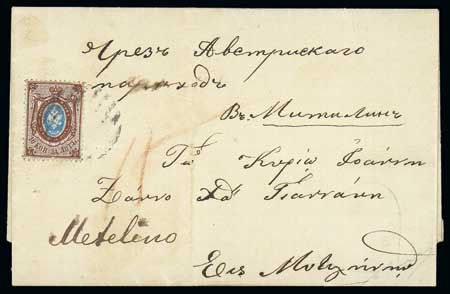 Чрезъ Австрискаго
пароходъ
Въ Митилинъ
Τῷ Κυρίῳ Ἰοάννῃ
Χα Γιαννάκη
Metelino
Εις Μυτιλήνην